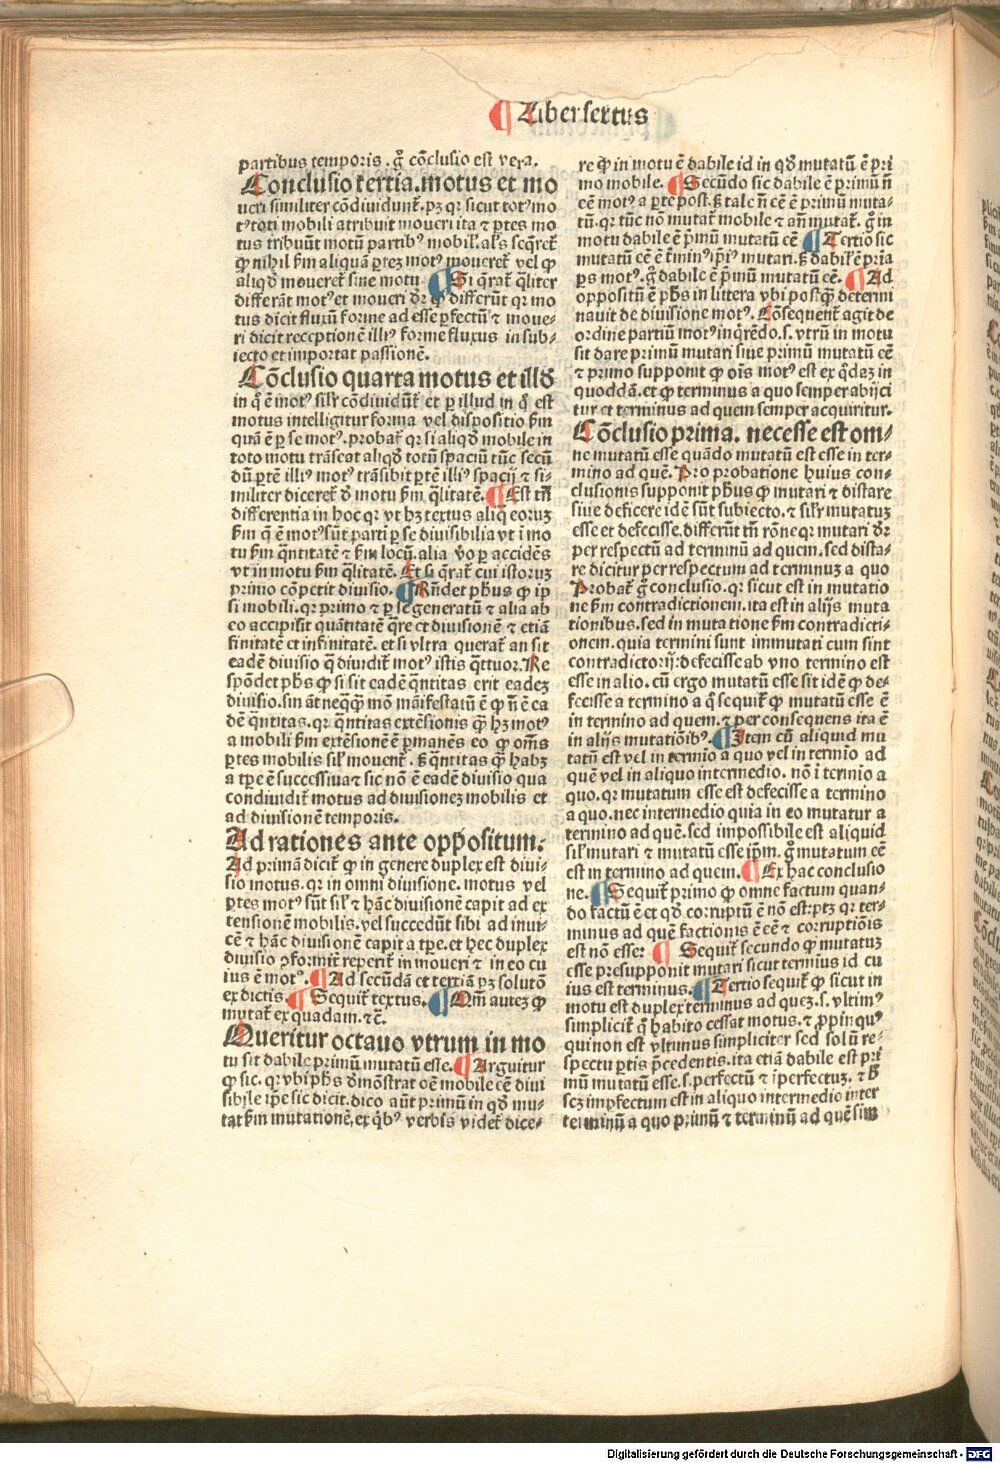 ¶ Liber sextus
partibus temporis . g̃ cõclusio est vera.
Conclusio tertia. motus et mo
ueri similiter cõdiuidunt̃. pʒ qꝛ sicut totꝰ mo
tꝰ toti mobili atribuit moueri ita ⁊ ꝑtes mo
tus tribuũt motũ partibꝰ mobil̃. al's seq̃ret̃
ꝙ nihil ẜm aliquã ꝑteʒ motꝰ moueret̃ vel ꝙ
aliqď moueret̃ sine motu ¶ Si q̃rat̃ q̃liter
differãt motꝰ et moueri ďꝛ ꝙ differũt qꝛ mo
tus dicit fluxũ forme ad esse ꝑfectũ ⁊ moue-
ri dicit receptionẽ illiꝰ forme fluxus in sub-
iecto et importat passionẽ.
Cõclusio quarta motus et illď
in q̃ ẽ motꝰ sil'r cõdiuidũt̃ et ꝑ illud in q̃ est
motus intelligitur forma vel dispositio ẜm
quã ẽ ꝑ se motꝰ. probat̃ qꝛ si aliqď mobile in
toto motu trãseat aliqď totũ spaciũ tũc secũ
dũ ꝑtẽ illiꝰ motꝰ trãsibit ꝑtẽ illiꝰ spacij ⁊ si-
militer diceret̃ ď motu ẜm q̃litatẽ. ¶ Est tñ
differentia in hoc qꝛ vt hʒ textus aliq̃ eoruʒ
ẜm q̃ ẽ motꝰ sũt parti ꝑ se diuisibilia vt ĩ mo
tu ẜm q̃ntitatẽ ⁊ ẜm locũ. alia ṽo ꝑ accidẽs
vt in motu ẜm q̃litatẽ. Et si q̃rat̃ cui istoruʒ
primo cõpetit diuisio. ¶ Rñdet ph̃us ꝙ ip
si mobili. qꝛ primo ⁊ ꝑ se generatũ ⁊ alia ab
eo accipiũt quãtitatẽ q̃re et diuisionẽ ⁊ etiã
finitatẽ et infinitatẽ. et si vltra querat̃ an sit
eadẽ diuisio q̃ diuidit̃ motꝰ istis q̃ttuor. Re
spõdet ph̃s ꝙ si sit eadẽ q̃ntitas erit eadeʒ
diuisio. sin aũt neq̃q̃ mõ mãifestatũ ẽ ꝙ nõ ẽ ea
dẽ q̃ntitas. qꝛ q̃ntitas extẽsionis q̃ hʒ motꝰ
a mobili ẜm extẽsionẽ ẽ ꝑmanẽs eo ꝙ om̃s
ꝑtes mobilis sil̃ mouent̃ . ß q̃ntitas q̃ habʒ
a tp̃e ẽ successiua ⁊ sic nõ ẽ eadẽ diuisio qua
condiuidit̃ motus ad diuisioneʒ mobilis et
ad diuisionẽ temporis.
Ad rationes ante opp̃ositum.
Ad primã dicit̃ ꝙ in genere duplex est diui-
sio motus. qꝛ in omni diuisione. motus vel
ꝑtes motꝰ sũt sil̃ ⁊ hãc diuisionẽ capit ad ex
tensionẽ mobilis. vel succedũt sibi ad inui-
cẽ ⁊ hãc diuisionẽ capit a tp̃e. et hec duplex
diuisio ꝯformit̃ reperit̃ in moueri ⁊ in eo cu
ius ẽ motꝰ. ¶ Ad secũdã et tertiã pʒ solutõ
ex dictis. ¶ Sequit̃ textus. ¶ Qm̃ auteʒ ꝙ
mutat̃ ex quadam. ⁊c̃.
Queritur octauo vtrum in mo
tu sit dabile primũ mutatũ esse. ¶ Arguitur
ꝙ sic. qꝛ vbi ph̃s ďmõstrat oẽ mobile eẽ diui
sibile ip̃e sic dicit. dico aũt primũ in qď mu-
tat̃ ẜm mutationẽ. ex q̃bꝰ verbis videt̃ dice-
re ꝙ in motu ẽ dabile id in qď mutatũ ẽ pꝛi
mo mobile. ¶ Secũdo sic dabile ẽ primũ ñ
eẽ motꝰ a ꝑte post. ß tale ñ eẽ ẽ primũ muta-
tũ. qꝛ tũc nõ mutat̃ mobile ⁊ añ mutat̃. g̃ in
motu dabile ẽ p̃mũ mutatũ eẽ ¶ Tertio sic
mutatũ eẽ ẽ t̃minꝰ ip̃iꝰ mutari. ß dabil̃ ẽ pria
ꝑs motꝰ. g̃ dabile ẽ p̃mũ mutatũ eẽ. ¶ Ad
oppositũ ẽ ph̃s in littera vbi postq̃ determi
nauit de diuisione motꝰ. Cõsequent̃ agit de
ordine partiũ motꝰ inq̃rẽdo .s. vtrũ in motu
sit dare primũ mutari siue primũ mutatũ eẽ
⁊ primo supponit ꝙ oĩs motꝰ est ex q̃daʒ in
quoddã. et ꝙ terminus a quo semper abijci
tur et terminus ad quem semper acquiritur.
Cõclusio prima. necesse est om-
ne mutatũ esse quãdo mutatũ est esse in ter-
mino ad quẽ. Pro probatione huius con-
clusionis supponit ph̃us ꝙ mutari ⁊ distare
siue deficere idẽ sũt subiecto. ⁊ sil'r mutatuʒ
esse et defecisse. differũt tñ rõne qꝛ mutari ďꝛ
per respectũ ad terminũ ad quem. sed dista-
re dicitur per respectum ad terminuʒ a quo
Probat̃ g̃ conclusio. qꝛ sicut est in mutatio
ne ẜm contradictionem. ita est in alijs muta
tionibus. sed in mutatione ẜm contradicti-
onem. quia termini sunt immutati cum sint
contradictorij: defecisse ab vno termino est
esse in alio. cũ ergo mutatũ esse sit idẽ ꝙ de-
fecisse a termino a q̃ sequit̃ ꝙ mutatũ esse ẽ
in termino ad quem. ⁊ per consequens ita ẽ
in alijs mutatiõibꝰ. ¶ Item cũ aliquid mu
tatũ est vel in termio a quo vel in termio ad
quẽ vel in aliquo intermedio. nõ ĩ termio a
quo. qꝛ mutatum esse est defecisse a termino
a quo. nec intermedio quia in eo mutatur a
termino ad quẽ. sed impossibile est aliquid
sil̃ mutari ⁊ mutatũ esse ip̃m. g̃ mutatum eẽ
est in termino ad quem. ¶ Ex hac conclusio
ne. ¶ Sequit̃ primo ꝙ omne factum quan-
do factũ ẽ et qď corruptũ ẽ nõ est: ptʒ qꝛ ter-
minus ad quẽ factionis ẽ eẽ ⁊ corruptiõis
est nõ esse: ¶ Sequit̃ secundo ꝙ mutatuʒ
esse presupponit mutari sicut terminus id cu
ius est terminus. ¶ Tertio sequit̃ ꝙ sicut in
motu est duplex terminus ad queʒ .s. vltimꝰ
simplicit̃ q̃ habito cessat motus. ⁊ ꝓpinquꝰ
qui non est vltimus simpliciter sed solũ re-
spectu ꝑtis p̃cedentis. ita etiã dabile est pꝛi
mũ mutatũ esse .s. perfectũ ⁊ ĩperfectuʒ. ⁊ ß
scʒ imꝑfectum est in aliquo intermedio inter
terminũ a quo primũ ⁊ terminũ ad quẽ sim
Digitalisierung gefördert durch die Deutsche Forschungsgemeinschaft - DFG